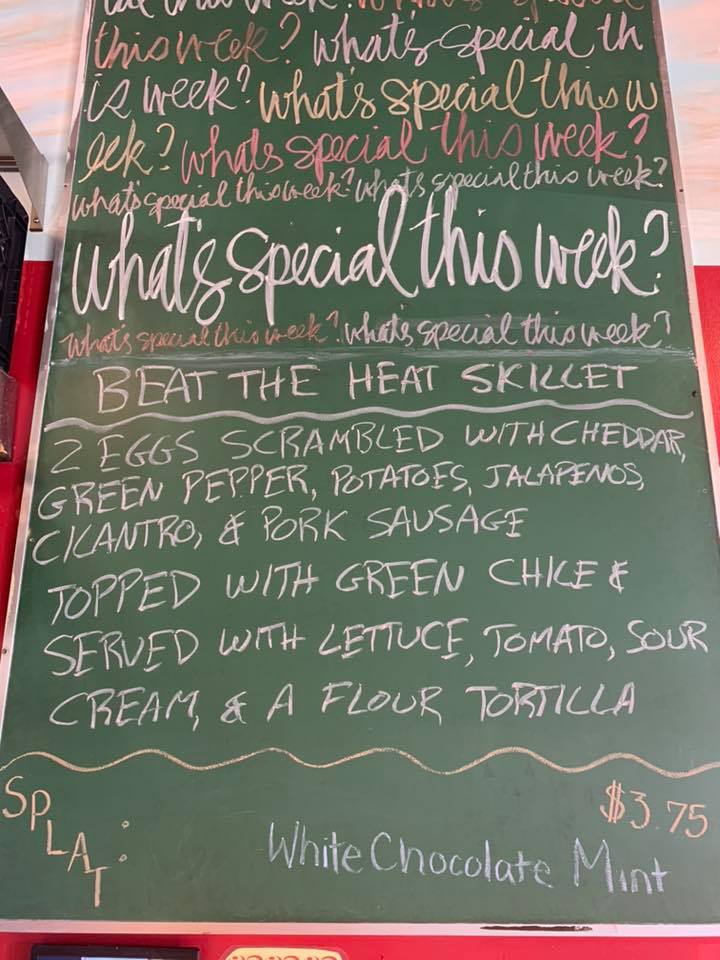 this week? what's special th
is week? what's special this w
eek? whats special this week?
what's special this week? what's special this week?
what's special this week?
what's special this week? whats special this week?
BEAT THE HEAT SKILLET
2 EGGS SCRAMBLED WITH CHEDDAR,
GREEN PEPPER, POTATOES, JALAPENOS,
CILANTRO, & PORK SAUSAGE
TOPPED WITH GREEN CHILE &
SERVED WITH LETTUCE, TOMATO, SOUR
CREAM, & A FLOUR TORTILLA
SPLAT:
$3.75
White Chocolate Mint